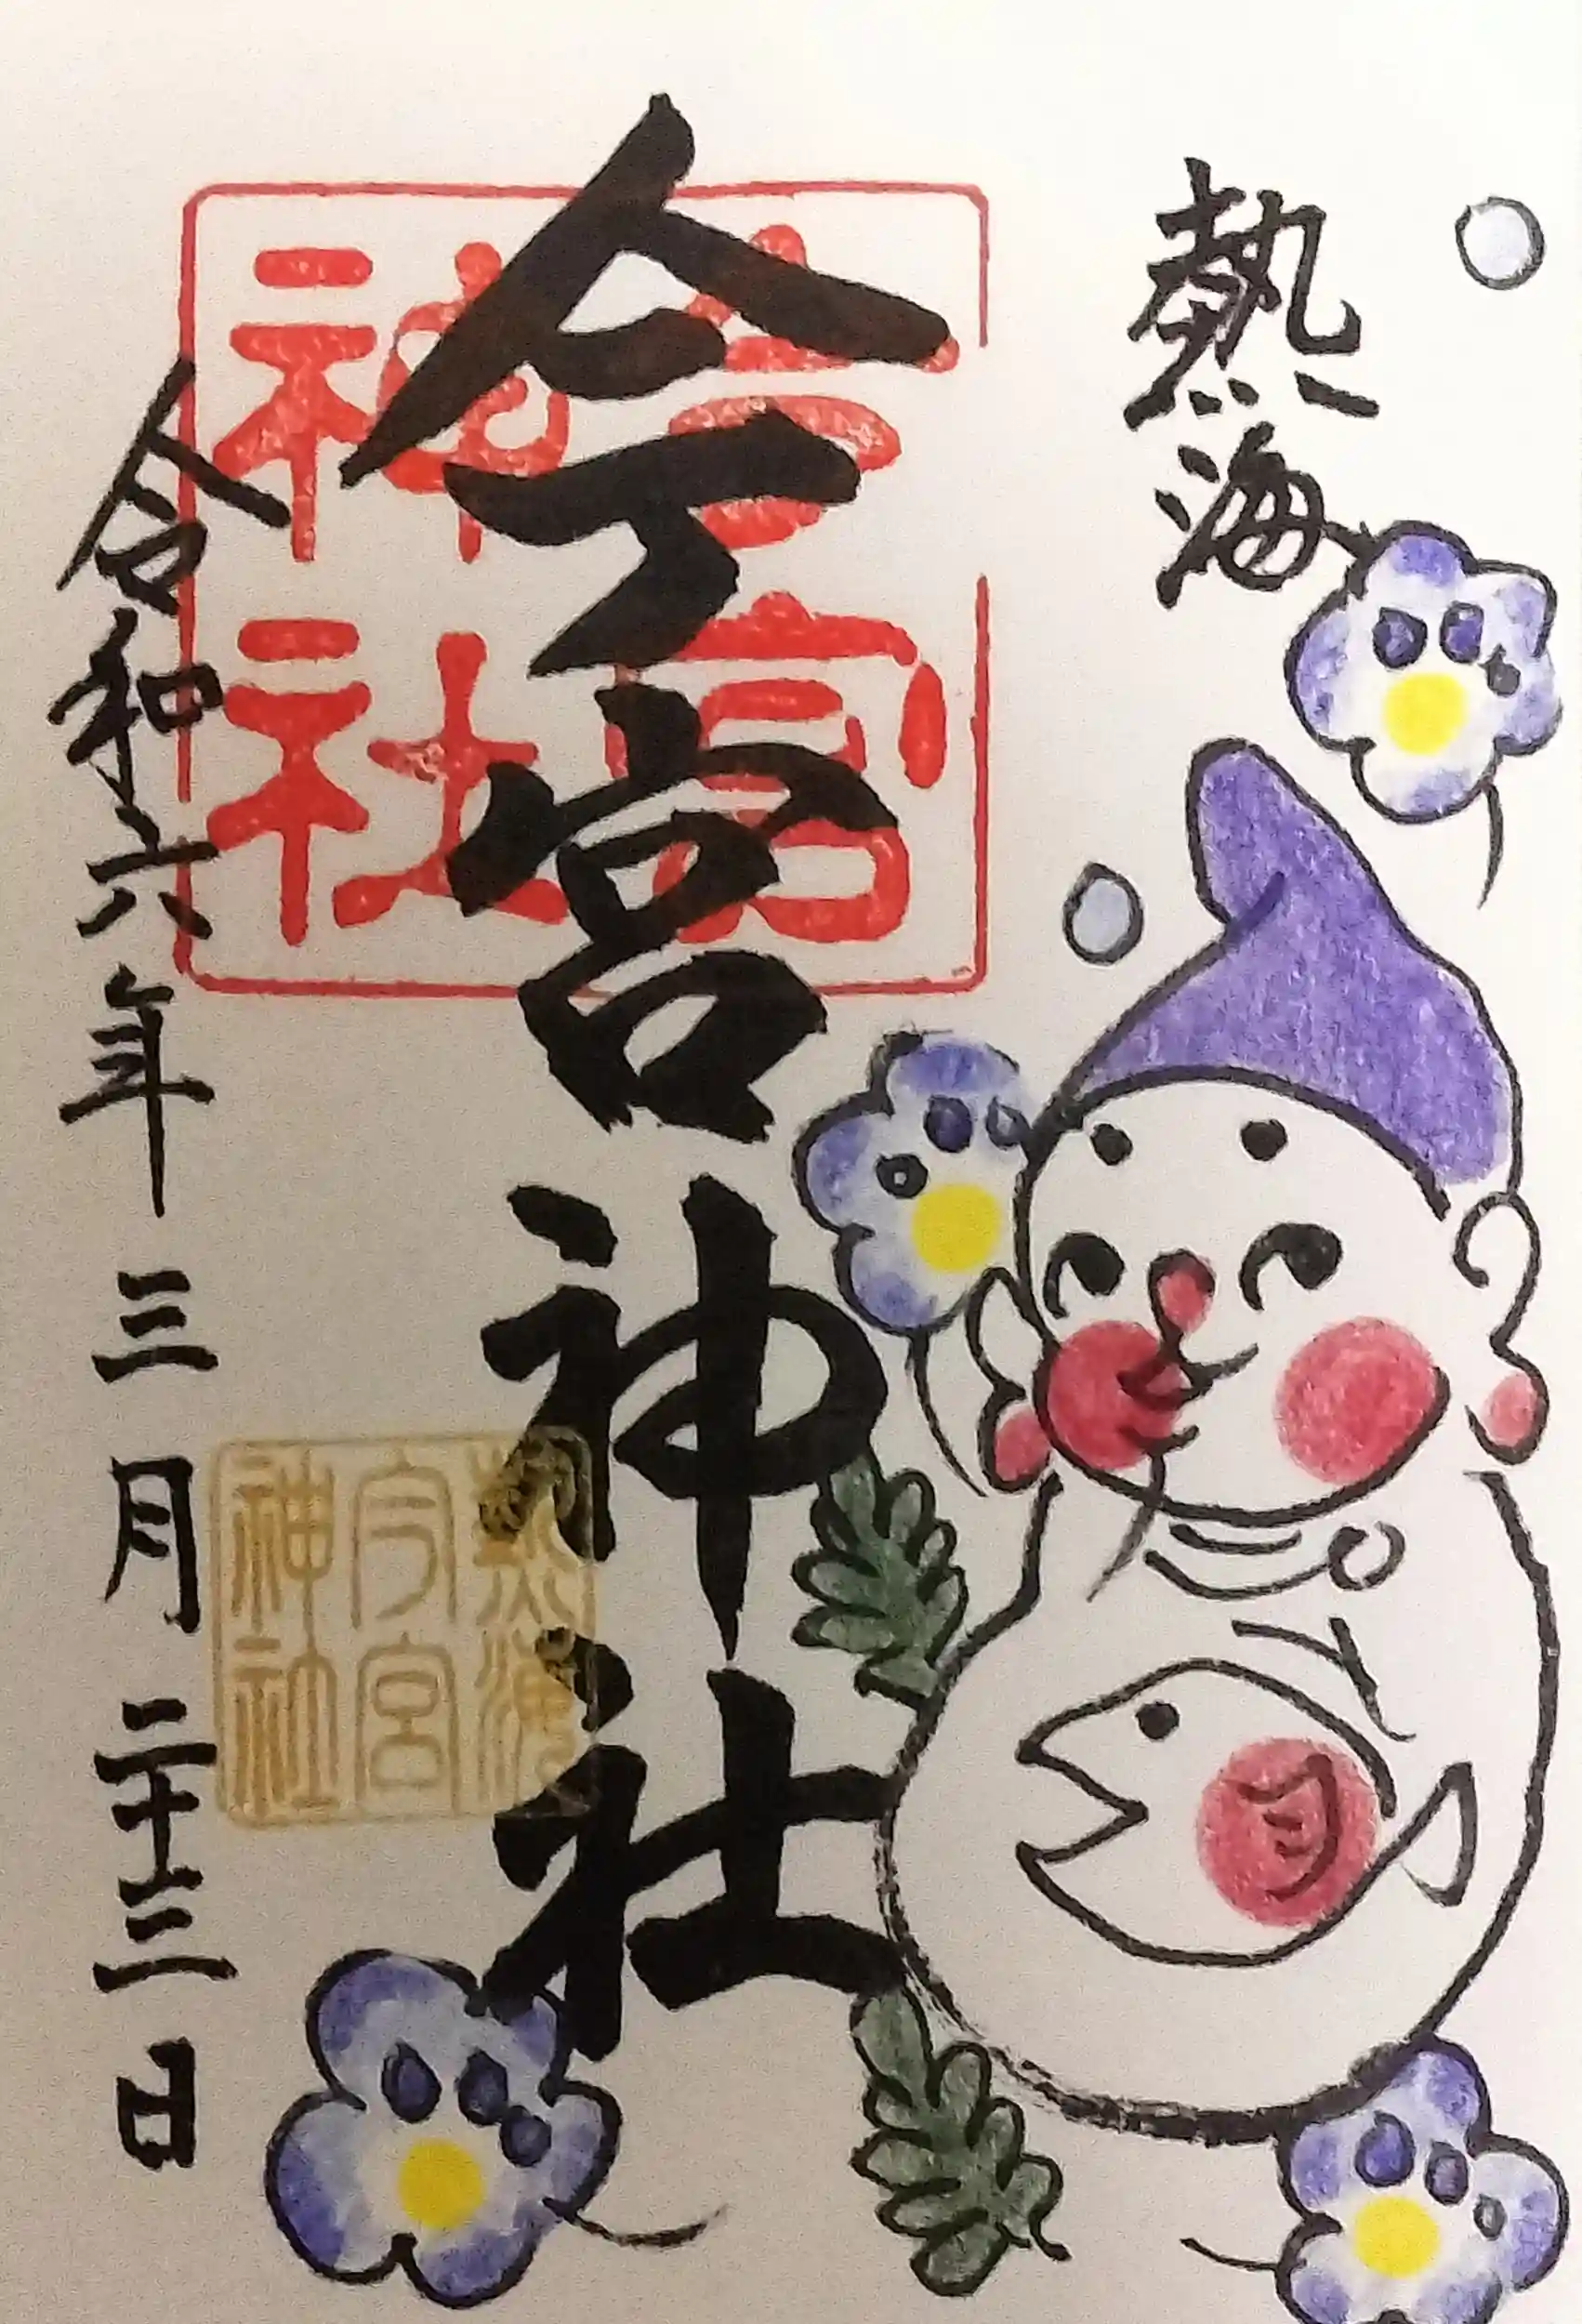 熱海
今宮神社
今宮神社
熱海
今宮
神社
令和六年三月二十三日